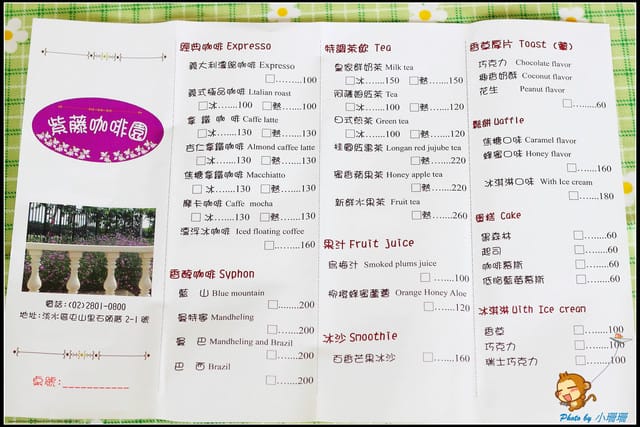 紫藤咖啡園
電話:(02)2801-0800
地址:淡水區屯山里石頭厝2-1號
桌號:__________
經典咖啡 Expresso
義大利濃縮咖啡 Expresso
□……..100
義式極品咖啡 Ltalian roast
□冰…….100 □熱…….100
拿鐵咖啡 Caffe latte
□冰…….130 □熱…….130
杏仁拿鐵咖啡 Almond caffee latte
□冰…….130 □熱…….130
焦糖拿鐵咖啡 Macchiatto
□冰…….130 □熱…….130
摩卡咖啡 Caffe mocha
□冰…….130 □熱…….130
漂浮冰咖啡 Iced floating coffee
□……..160
香醇咖啡 Syphon
藍 山 Blue mountain
□……..200
曼特寧 Mandheling
□……..200
曼 巴 Mandheling and Brazil
□……..200
巴 西 Brazil
□……..200
特調茶飲 Tea
皇家鮮奶茶 Milk tea
□冰…….150 □熱…….150
阿薩姆紅茶 Tea
□冰…….100 □熱…….120
日式煎茶 Green tea
□冰…….100 □熱…….120
桂圓紅棗茶 Longan red jujube tea
□熱…….220
蜜香蘋果茶 Honey apple tea
□熱…….220
新鮮水果茶 Fruit tea
□熱…….260
果汁 Fruit juice
烏梅汁 Smoked plums juice
□……..100
柳橙蜂蜜蘆薈 Orange Honey Aloe
□……..120
冰沙 Smoothie
百香芒果冰沙 □……..160
香草厚片 Toast (蛋)
巧克力 Chocolate flavor
椰香奶酥 Coconut flavor
花生 Peanut flavor
□……..60
鬆餅 Waffle
焦糖口味 Caramel flavor
蜂蜜口味 Honey flavor
□……..160
冰淇淋口味 With Ice cream
□……..180
蛋糕 Cake
黑森林 □……..60
起司 □……..60
咖啡慕斯 □……..60
低脂藍莓慕斯 □……..60
冰淇淋 With Ice crean
香草 □……..100
巧克力 □……..100
瑞士巧克力 □……..100
Photo by 小珊珊